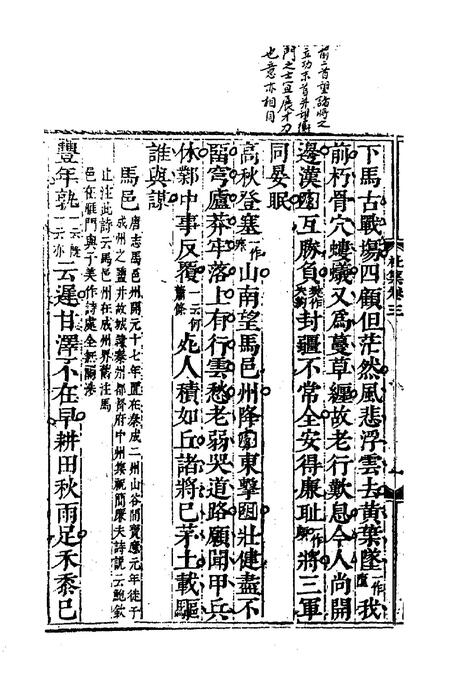 前二首望諸將之
立功末首并望衡
門之士宜展才力
也意亦相因
杜集卷三
下馬古戰場四顧但茫然風悲浮雲去黃葉墜一作墮我
前朽骨穴螻蟻又爲蔓草纏故老行歎息今人尚開
邊漢互勝負樊作失約封疆不常全安得廉耻一作頗將三軍
同晏眠
高秋登塞一作寒山南望馬邑州降東擊壯健盡不
留穹廬莽牢落上有行雲愁老弱哭道路願聞甲兵
休鄴中事反覆一云何蕭條死人積如丘諸將已茅土載驅
誰與謀
馬邑
唐志馬邑州開元十七年置在秦成二州山谷間寶應元年徙于
成州之鹽井故城隸秦州都督府中州集祝簡廉夫詩説云鮑欽
止注此詩云馬邑州在成州界舊注馬
邑在雁門與子美作詩處全無關涉
豐年孰一云既一云亦云遲甘澤不在早耕田秋雨足禾黍已